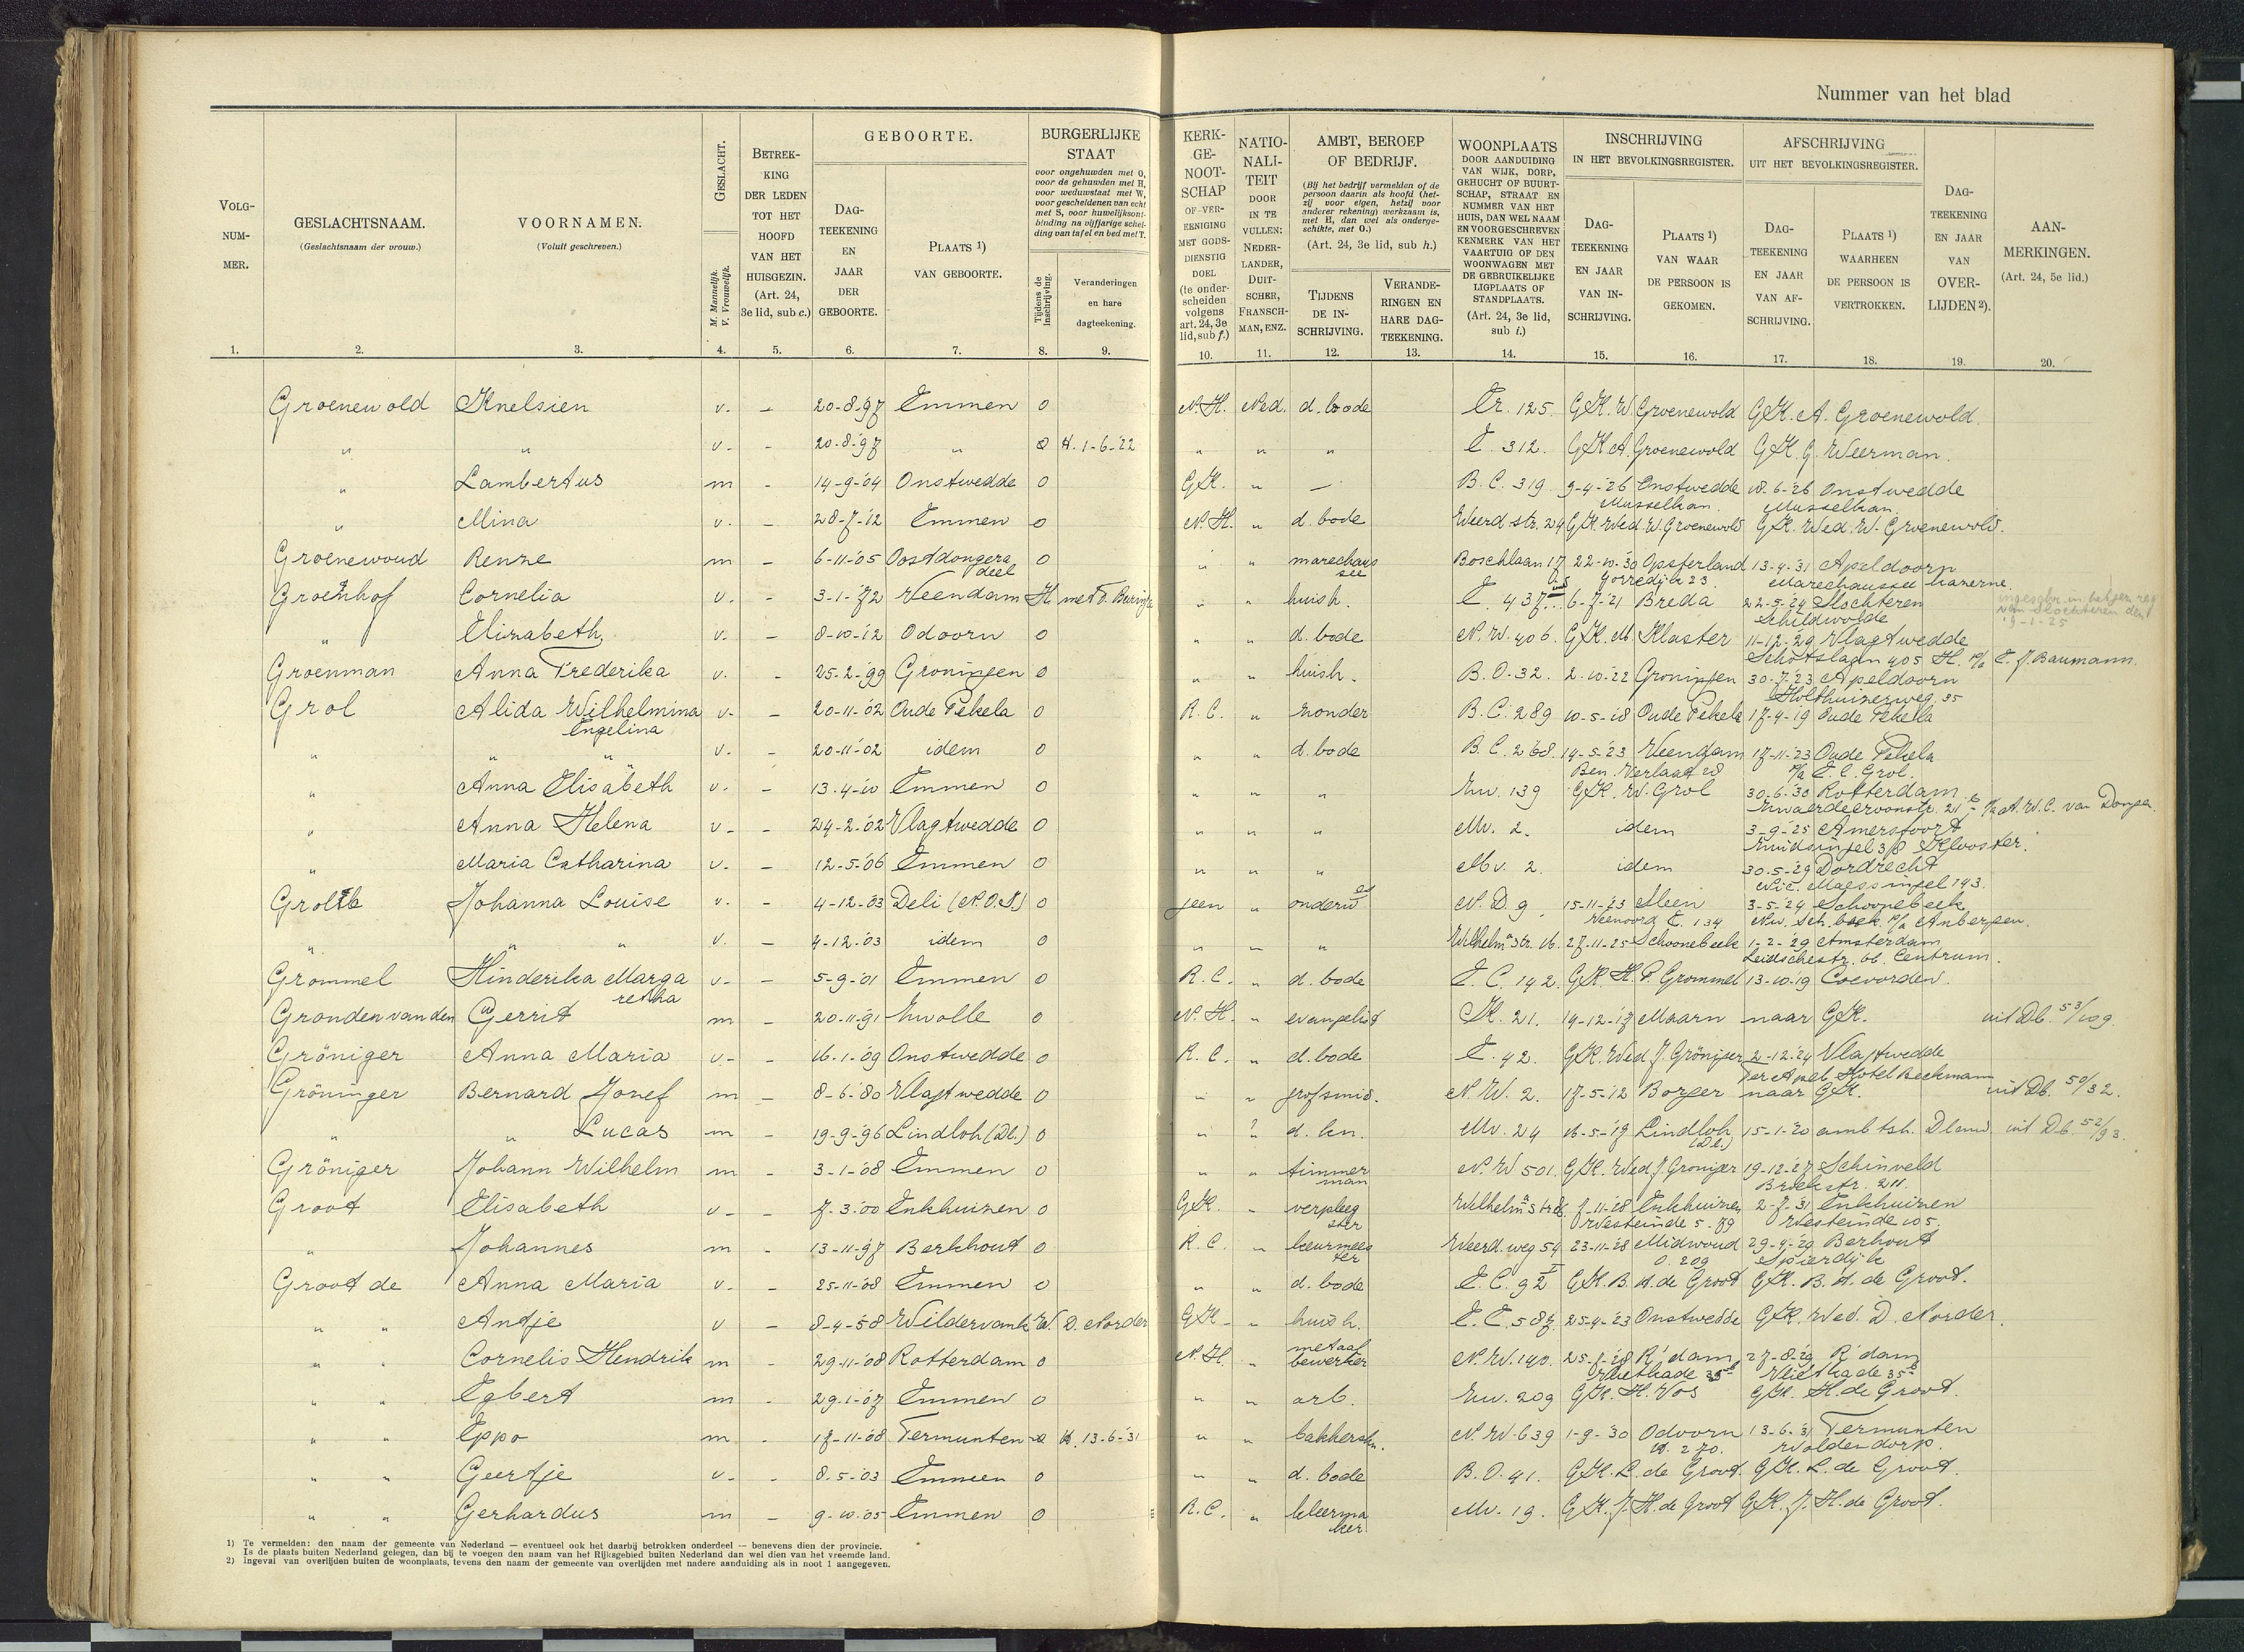 Nummer van het blad
VOLGNUMMER.
GESLACHTSNAAM.
(Geslachtsnaam der vrouw.)
VOORNAMEN.
(Voluit geschreven.)
GESLACHT.
M. Mannelijk.
V. Vrouwelijk.
BETREKKING DER LEDEN TOT HET HOOFD VAN HET HUISGEZIN.
(Art. 24, 3e lid, sub c.)
GEBOORTE.
DAGTEEKENING EN JAAR DER GEBOORTE.
PLAATS 1) VAN GEBOORTE.
BURGERLIJKE STAAT
voor ongehuwden met O, voor de gehuwden met H, voor weduwstaat met W, voor gescheidenen van echt met S, voor huwelijksontbinding na vijfjarige scheiding van tafel en bed met T.
Tijdens de inschrijving.
Veranderingen en hare dagteekening.
KERKGENOOTSCHAP OF VEREENIGING MET GODSDIENSTIG DOEL
(te onderscheiden volgens art. 24, 3e lid, sub f.)
NATIONALITEIT DOOR IN TE VULLEN: NEDERLANDER, DUITSCHER, FRANSCHMAN, ENZ.
AMBT, BEROEP OF BEDRIJF.
(Bij het bedrijf vermelden of de persoon daarin als hoofd (hetzij voor eigen, hetzij voor anderer rekening) werkzaam is, met H, dan wel als ondergeschikte, met O.)
(Art. 24, 3e lid, sub h.)
TIJDENS DE INSCHRIJVING.
VERANDERINGEN EN HARE DAGTEEKENING.
WOONPLAATS
DOOR AANDUIDING VAN WIJK, DORP, GEHUCHT OF BUURTSCHAP, STRAAT EN NUMMER VAN HET HUIS, DAN WEL NAAM EN VOORGESCHREVEN KENMERK VAN HET VAARTUIG OF DEN WOONWAGEN MET DE GEBRUIKELIJKE LIGPLAATS OF STANDPLAATS.
(Art. 24, 3e lid, sub i.)
INSCHRIJVING IN HET BEVOLKINGSREGISTER.
DAGTEEKENING EN JAAR VAN INSCHRIJVING.
PLAATS 1) VAN WAAR DE PERSOON IS GEKOMEN.
AFSCHRIJVING UIT HET BEVOLKINGSREGISTER.
DAGTEEKENING EN JAAR VAN AFSCHRIJVING.
PLAATS 1) WAARHEEN DE PERSOON IS VERTROKKEN.
DAGTEEKENING EN JAAR VAN OVERLIJDEN 2).
AANMERKINGEN.
(Art. 24, 5e lid.)
1. 2. 3. 4. 5. 6. 7. 8. 9. 10. 11. 12. 13. 14. 15. 16. 17. 18. 19. 20.
Groenewold Knelsien v. - 20-8-'97 Emmen O N.H. Ned. d.bode Er. 125. G.K. W. Groenewold G.K. A. Groenewold.
" " v. - 20-8-'97 " O H. 1-6-'22 " " " E. 312. G.K. A. Groenewold G.K. G. Weerman.
" Lambertus m - 14-9-'04 Onstwedde O G.K. " — B.C. 319 9-4-'26 Onstwedde 18-6-'26 Onstwedde
Musselkan. Musselkan.
" Mina v. - 28-7-'12 Emmen O N.H. " d. bode Weerd str. 24 G.K. Wed. W. Groenewold G.K. Wed. W. Groenewold.
Groenewoud Renze m - 6-11-'05 Oostdongera deel O " " marechaus see Boschlaan 17 22-10-'30 Opsterland 13-4-31 Apeldoorn
Gorredijk 23. Marechaussee kazerne
Groenhof Cornelia v. - 3-1-'72 Veendam H. met D. Buringa " " huish. E. 437 6-7-'21 Breda 22-5-'24 Slochteren
Schildwolde
19-1-25
" Elizabeth v. - 8-10-'12 Odoorn O " " d. bode N.W. 406. G.K. M. Klaster 11-12-29 Vlagtwedde
Schotslaan 405 H. p/a E. J. Baumann.
Groenman Anna Frederika v. - 25-2-'99 Groningen O " " huish. B.O. 32. 2-10-22 Groningen 30-7-'23 Apeldoorn
Holthuizerweg. 35
Grol Alida Wilhelmina Engelina v. - 20-11-'02 Oude Pekela O R.C. " zonder B.C. 289 10-5-'18 Oude Pekela 17-4-'19 Oude Pekela
" " " v. - 20-11-'02 idem O " " d. bode B.C. 268. 14-5-'23 Veendam 17-11-'23 Oude Pekela
Ben. Verlaat p/a E.C. Grol.
" Anna Elisabeth v. - 13-4-'10 Emmen O " " " Zw. 139 G.K. W. Grol 30-6-'30 Rotterdam
p/a A.W.C. van Dongen.
" Anna Helena v. - 24-2-'02 Vlagtwedde O " " " Mv. 2. idem 3-9-'25 Amersfoort
Zuidsingel 38 Klooster.
" Maria Catharina v. - 12-5-'06 Emmen O " " " Mv. 2. idem 30-5-'29 Dordrecht
Nic. Maessingel 143.
Johanna Louise v. - 4-12-'03 Deli (N.O.I.) O geen " onderw es N.D. 9. 15-11-'23 Sleen 3-5-'24 Schoonebeek
Veenoord E. 134 Nw. Sch. beek p/a Anbergen.
" " " v. - 4-12-'03 idem O " " " Wilhelma str. 16. 27-11-25 Schoonebeek 1-2-'29 Amsterdam
Leidschestr. 66. Centrum.
Grommel Hinderika Marga retha v. - 5-9-'01 Emmen O R.C. " d. bode E.C. 142. G.K. H.P. Grommel 13-10-19 Coevorden.
Gronden van den Gerrit m - 20-11-'91 Zwolle O N.H. " evangelist K. 21. 14-12-'17 Maarn naar G.K. uit Db. 53/109
Gröniger Anna Maria v. - 16-1-'09 Onstwedde O R.C. " d. bode E. 42. G.K. Wed J. Gröniger 2-12-'24 Vlagtwedde
Ter Apel Hotel Beekman
Gröninger Bernard Jozef m - 8-6-'80 Vlagtwedde O " " grofsmid. N.W. 2. 17-5-'12 Borger naar G.K. uit Db. 50/32.
" " Lucas m - 19-9-'96 Lindloh (Dl.) O " ? d. kn. Mv. 24 16-5-'17 Lindloh (Dl.) 15-1-'20 ambtsh. uit Db. 52/93.
Gröniger Johann Wilhelm m - 3-1-'08 Emmen O " " timmer man N.W. 501. G.K. Wed J. Groniger 19-12-'27 Schinveld
Broekstr. 211.
Groot Elisabeth v. - 7-3-'00 Enkhuizen O G.K. " verpleeg ster Wilhelma str. 7-11-'28 Enkhuizen 2-7-31 Enkhuizen
Westeinde 5. 79 Westeinde 105.
" Johannes m - 13-11-'97 Berkhout O R.C. " keurmees ter Weerd. weg 54 23-11-'28 Midwoud 29-4-'29 Berhout
O. 209 Spierdijk
Groot de Anna Maria v. - 25-11-'08 Emmen O " " d. bode E.C. 92 G.K. B.H. de Groot G.K. B.H. de Groot.
" " Antje v - 8-4-'58 Wildervank W. D. Norder G.K. " huish. E.E. 587. 25-4-'23 Onstwedde G.K. Wed. D. Norder.
" " Cornelis Hendrik m - 29-11-'08 Rotterdam O N.H. " metaal bewerker N.W. 140. 25-1-'28 R'dam 27-8-'29 R'dam
Vlietkade 35 Vlietkade 35
" " Egbert m - 29-1-'07 Emmen O " " arb. Zw. 209 G.K. H. Vos G.K. H. de Groot.
" " Eppo m - 17-11-'08 Termunten O H. 13-6-'31 " " bakkerskn. N.W. 639 1-9-'30 Odoorn 13-6-'31 Termunten
270. Woldendorp.
" " Geertje v. - 8-5-'03 Emmen O " " d. bode B.O. 41. G.K. L. de Groot. G.K. L. de Groot.
" " Gerhardus m - 9-10-'05 Emmen O R.C. " kleerma ker Mv. 19. G.K. J.H. de Groot G.K. J.H. de Groot.
1) Te vermelden: den naam der gemeente van Nederland — eventueel ook het daarbij betrokken onderdeel — benevens dien der provincie.
Is de plaats buiten Nederland gelegen, dan bij te voegen den naam van het Rijksgebied buiten Nederland dan wel dien van het vreemde land.
2) Ingeval van overlijden buiten de woonplaats, tevens den naam der gemeente van overlijden met nadere aanduiding als in noot 1 aangegeven.